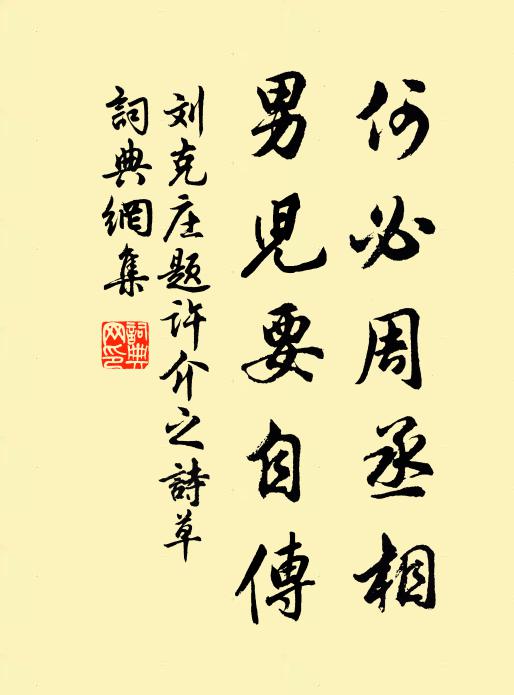 何必周丞相
男児要自傳
刘克庄题许介之詩草
詞典網集
詞典網印